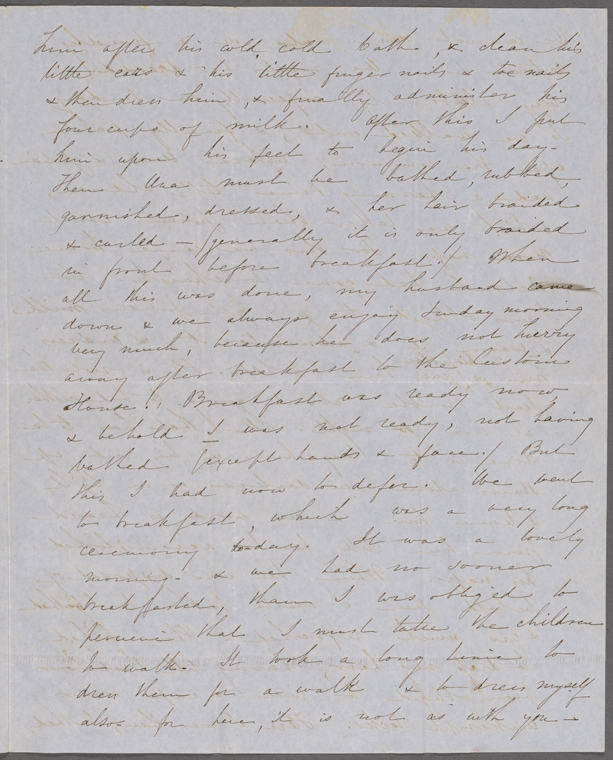 him after his cold, cold bath, & clean his
little ears & his little finger nails & toe nails
& then dress him, & finally administer his
four cups of milk. After this I put
him upon his feet to begin his day.
Then Una must be bathed, rubbed,
garnished, dressed, & her hair braided
& curled — (generally it is only braided
in front before breakfast.) When
all this was done, my husband came
down & we always enjoy Sunday morning
very much, because he does not hurry
away after breakfast to the Custom
House. Breakfast was ready now,
& behold I was not ready, not having
bathed (except hands & face.) But
this I had now to defer. We went
to breakfast, which was a very long
ceremony to-day. It was a lovely
morning. & we had no sooner
breakfasted, than I was obliged to
perceive that I must take the children
to walk. It took a long time to
dress them for a walk & to dress myself
also. for here, it is not as with you —